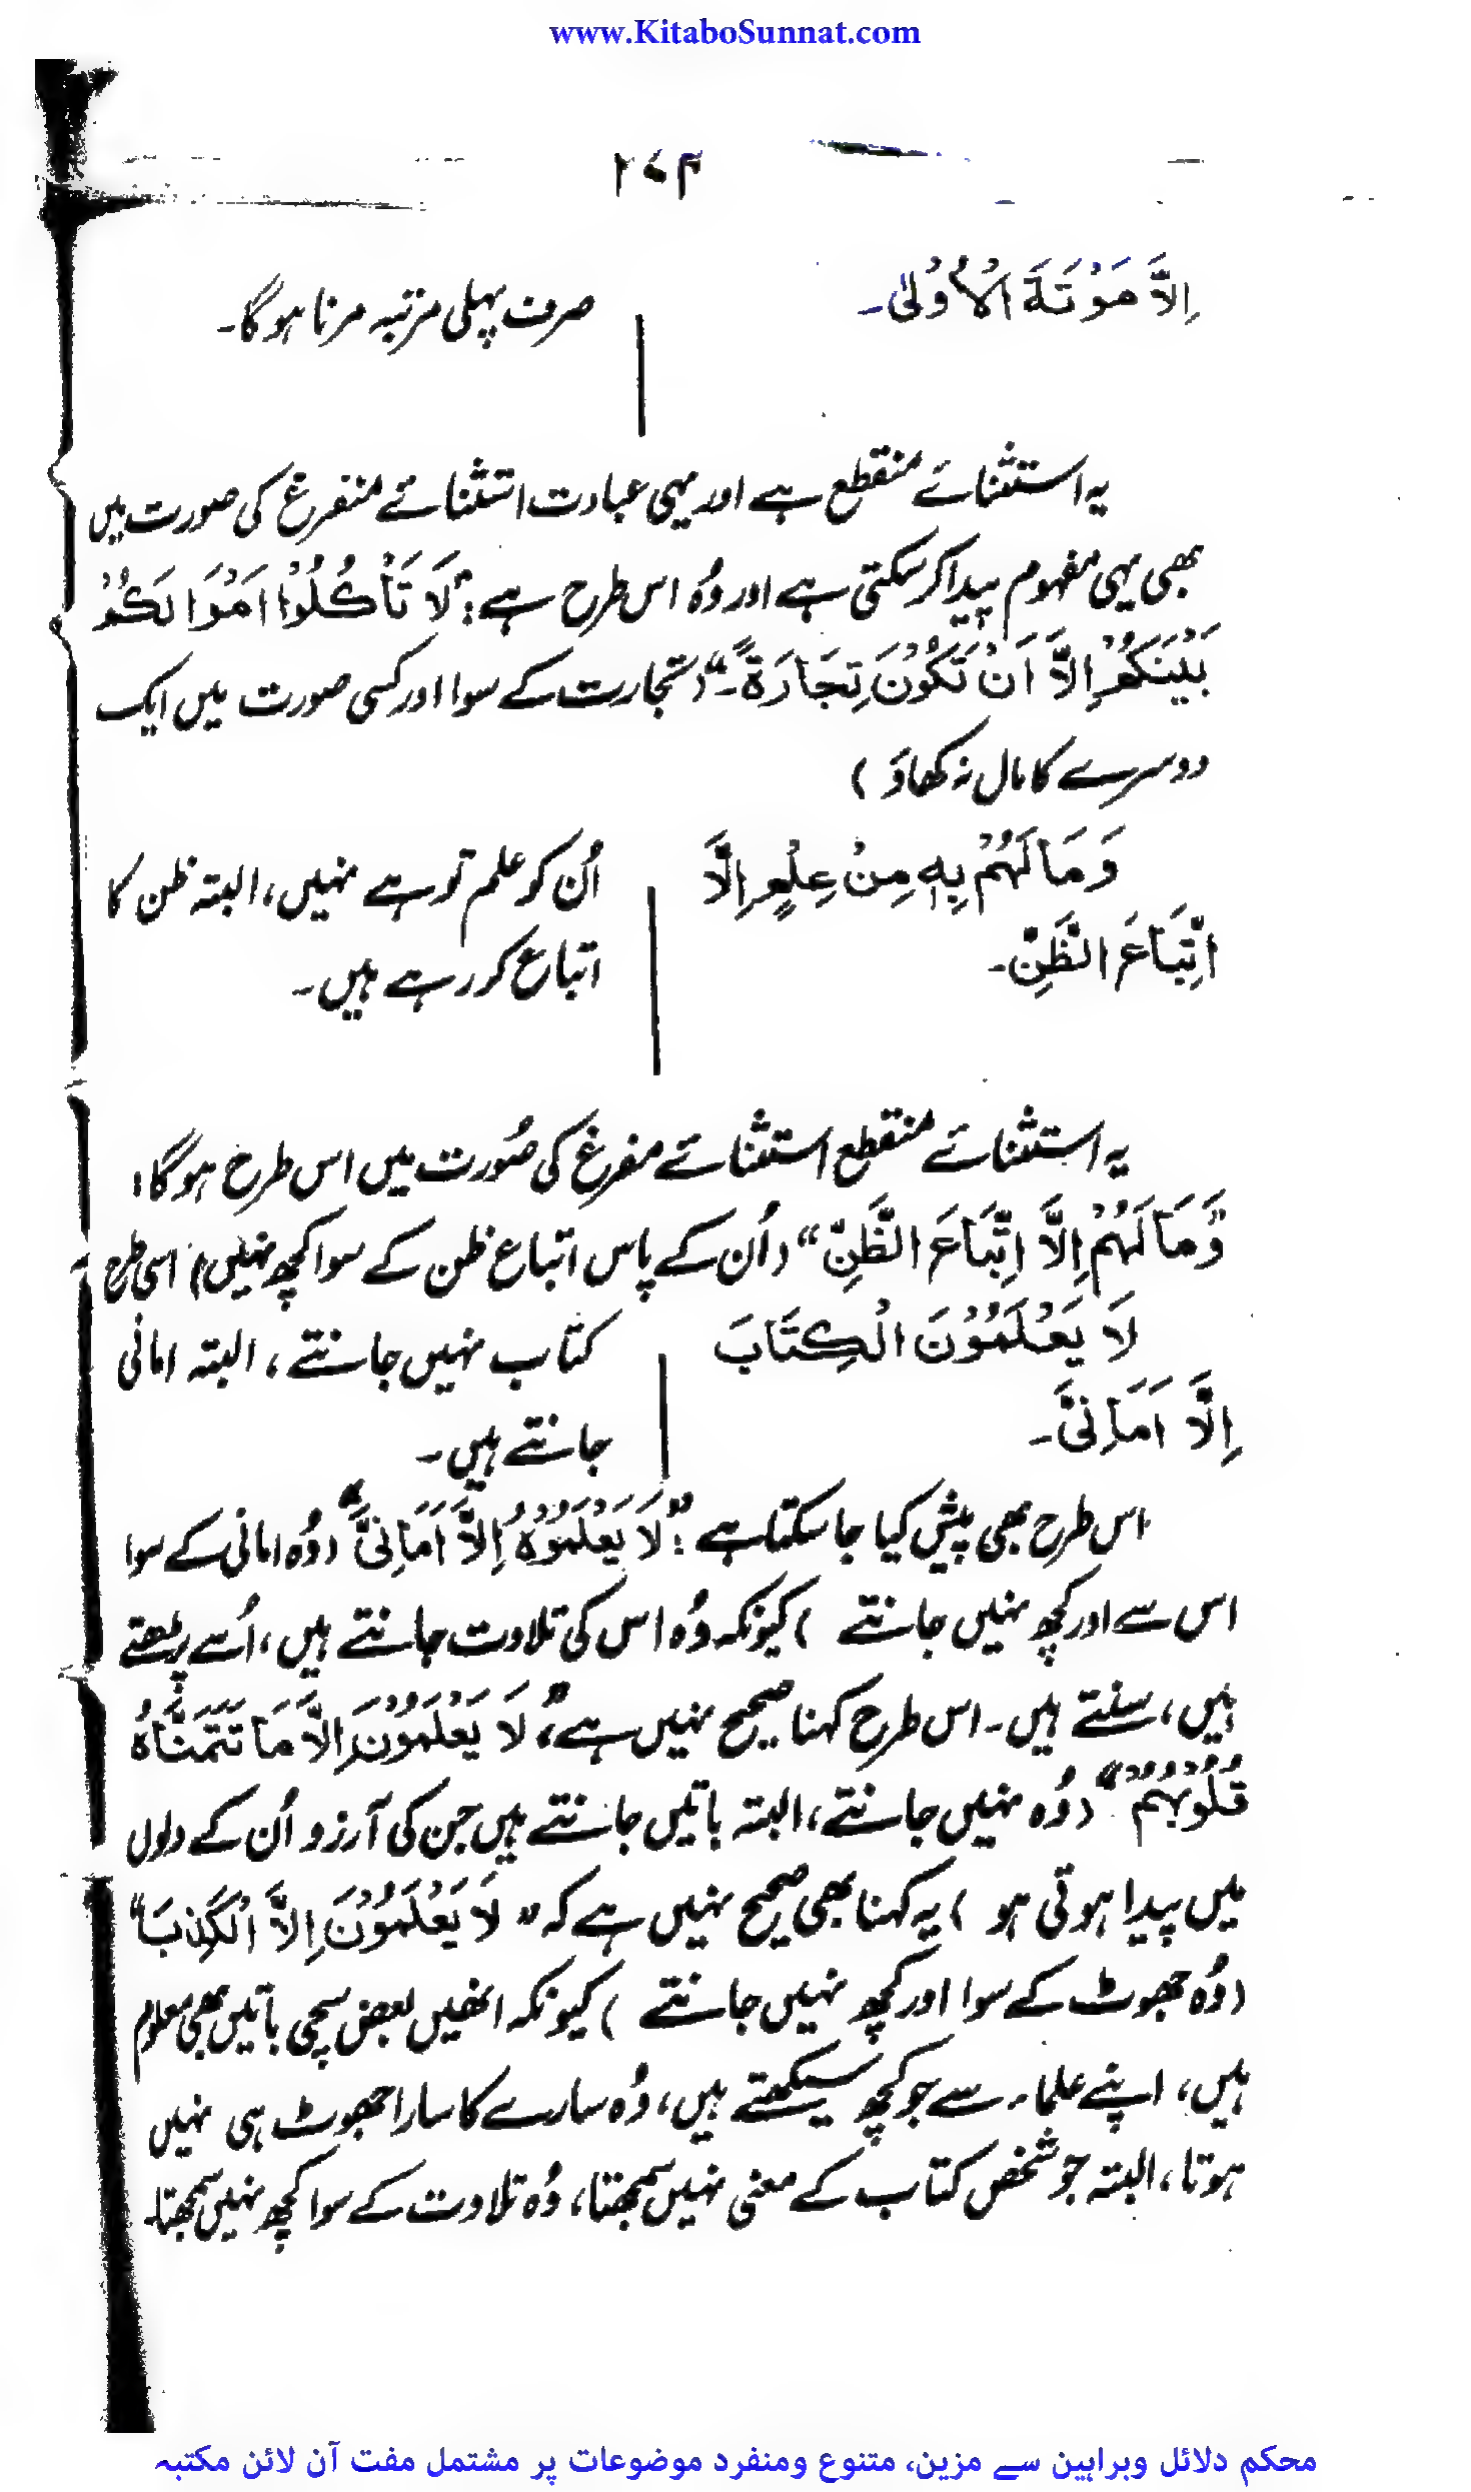 www.KitaboSunnat.com
۲۷۴
اِلَّا مَوْتَةَ الْاُوْلٰى۔
صرف پہلی مرتبہ مرنا ہوگا۔
یہ استثنائے منقطع ہے اور یہی عبادت استثنائے منفرغ کی صورت میں
بھی یہی مفہوم پیدا کر سکتی ہے اور وُہ اس طرح ہے: ”لَا تَأْكُلُوْا اَمْوَالَكُمْ
بَيْنَكُمْ اِلَّا اَنْ تَكُوْنَ تِجَارَةً۔“ (تجارت کے سوا اور کسی صورت میں ایک
دوسرے کا مال نہ کھاؤ)
وَمَا لَهُمْ بِهٖ مِنْ عِلْمٍ اِلَّا
اتِّبَاعَ الظَّنِّ۔
اُن کو علم تو ہے نہیں، البتہ ظن کا
اتباع کر رہے ہیں۔
یہ استثنائے منقطع استثنائے مفرغ کی صُورت میں اس طرح ہوگا:
”وَمَا لَهُمْ اِلَّا اِتِّبَاعَ الظَّنِّ“ (اُن کے پاس اتباع ظن کے سوا کچھ نہیں) اسی طرح
لَا يَعْلَمُوْنَ الْكِتَابَ
اِلَّا اَمَانِيَّ۔
کتاب نہیں جانتے، البتہ امانی
جانتے ہیں۔
اس طرح بھی پیش کیا جا سکتا ہے: ”لَا يَعْلَمُوْهُ اِلَّا اَمَانِيَّ“ (وُہ امانی کے سوا
اس سے اور کچھ نہیں جانتے) کیونکہ وُہ اس کی تلاوت جانتے ہیں، اُسے پڑھتے
ہیں، سنتے ہیں۔ اس طرح کہنا صحیح نہیں ہے، ”لَا يَعْلَمُوْنَ اِلَّا مَا تَتَمَنَّاهُ
قُلُوْبُهُمْ“ (وُہ نہیں جانتے، البتہ باتیں جانتے ہیں جن کی آرزو اُن کے دلوں
میں پیدا ہوتی ہو) یہ کہنا بھی صحیح نہیں ہے کہ ”لَا يَعْلَمُوْنَ اِلَّا الْكَذِبَ“
(وُہ جھوٹ کے سوا اور کچھ نہیں جانتے) کیونکہ انھیں بعض سچی باتیں بھی معلوم
ہیں، اپنے علماء سے جو کچھ سیکھتے ہیں، وُہ سارے کا سارا جھوٹ ہی نہیں
ہوتا، البتہ جو شخص کتاب کے معنی نہیں سمجھتا، وُہ تلاوت کے سوا کچھ نہیں سمجھتا۔
محکم دلائل وبراہین سے مزین، متنوع ومنفرد موضوعات پر مشتمل مفت آن لائن مکتبہ